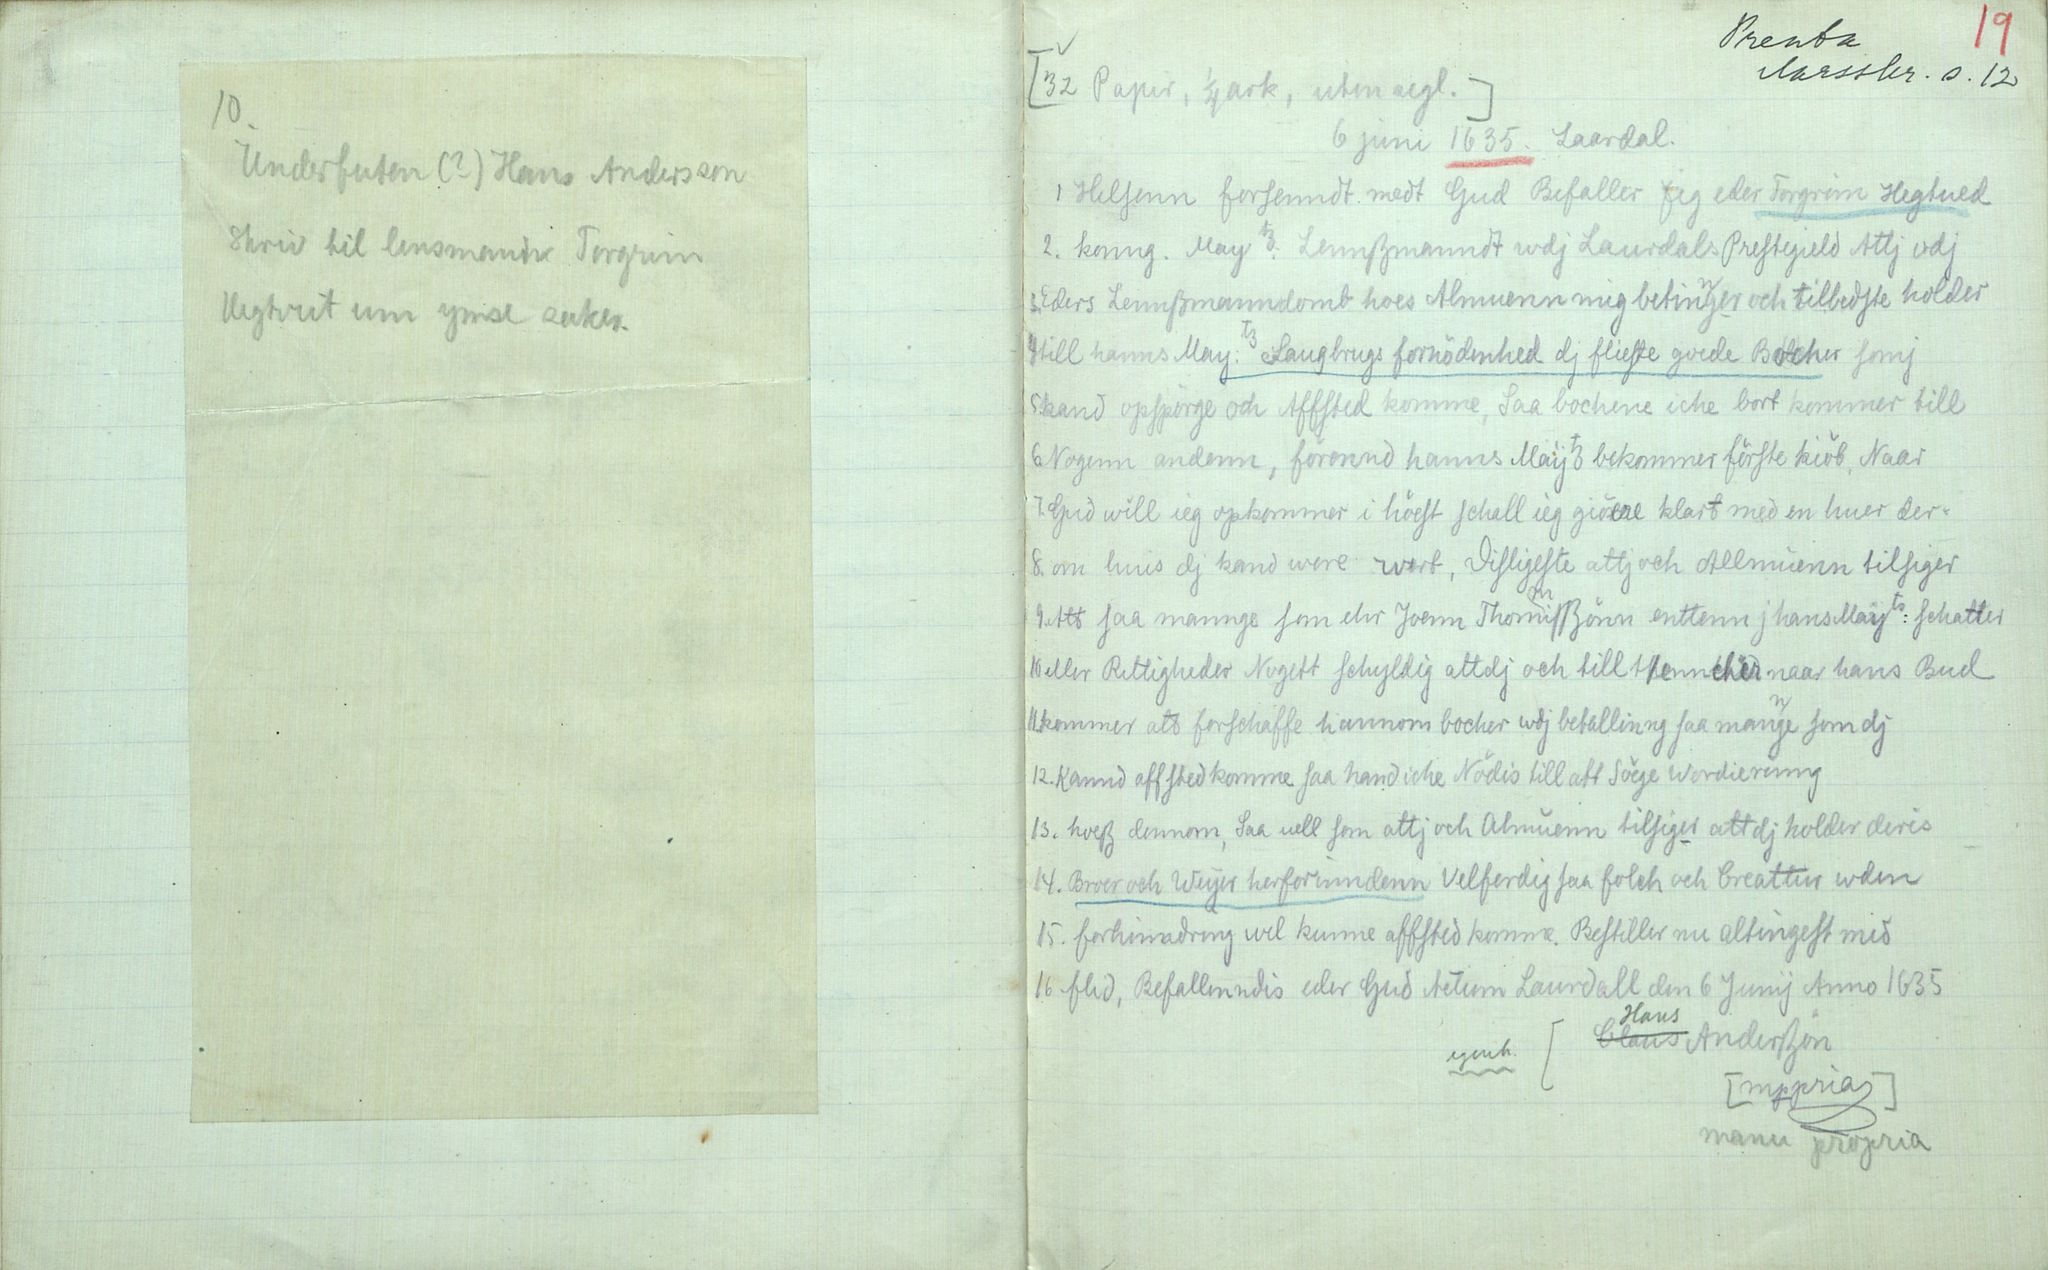 10.
Underfuten (?) Hans Andersson
skriv til lensmandn Torgrim
Hegtveit um ymse saker.
19
Prenta
Aarsskr. s. 12
[32 Papir, ¼ ark, uten segl.]
6 juni 1635. Laardal.
1 Helsenn forsenndt medt Gud Befaller Jeg eder Torgrim Hegtued
2. konng. May tz. Lennßmanndt wdj Laurdals Prestegield Attj vdj
3. Eders Lennßmanndomb hoes Almuenn mig betinnger och tilbedste holder
4 till hanns May: tz Saugbrugs fornödenhed dj flieste goede Bocher somj
5. kand opspörge och Affsted komme, Saa bochene iche bort kommer till
6. Nogenn andenn, förennd hanns Maij tz bekommer förste kiöb, Naar
7. Gud will ieg opkommer i höest schall ieg giöre klart med en huer der-
8. om huis dj kand were wert, Disligeste attj och Allmuenn tilsiger
9. Att saa mannge som ehr Joenn Thomißßönn enttenn j hans Maij ts: schatter
10 eller Rettigheder Nogett schyldig att dj och till thenncher naar hans Bud
11. kommer att forschaffe hannom bocher wdj betallinng saa mannge som dj
12. Kannd affsted komme saa hand iche Nödis till att Söege Wordierinng
13. hoeß dennom, Saa uell som attj och Almuenn tilsiger att dj holder deris
14. Broer och Weijer herforinndenn Velferdig saa folch och Creattur uden
15. forhinndring vel kunne affsted komme. Bestiller nu altingest med
16 flid, Befallenndis eder Gud Actum Laurdall den 6 Junij Anno 1635
Hans
egenh. [ Claus Anderßön
[mppria]
manu propria